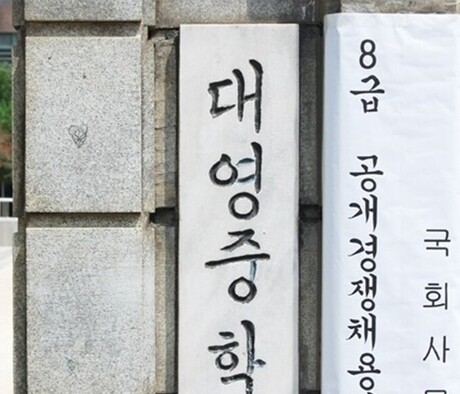 대영중학
8급 공개경쟁채용
국회사